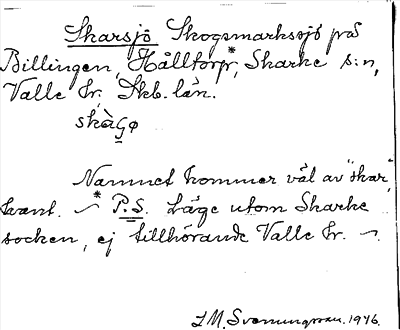 Skarsjö Skogsmarkssjö på
Billingen, Hålltorp*, Skarke s:n,
Valle hr, Skb. län.
Namnet kommer väl av "skar",
*P.S. Läge utom Skarke
socken, ej tillhörande Valle hr.
1946.